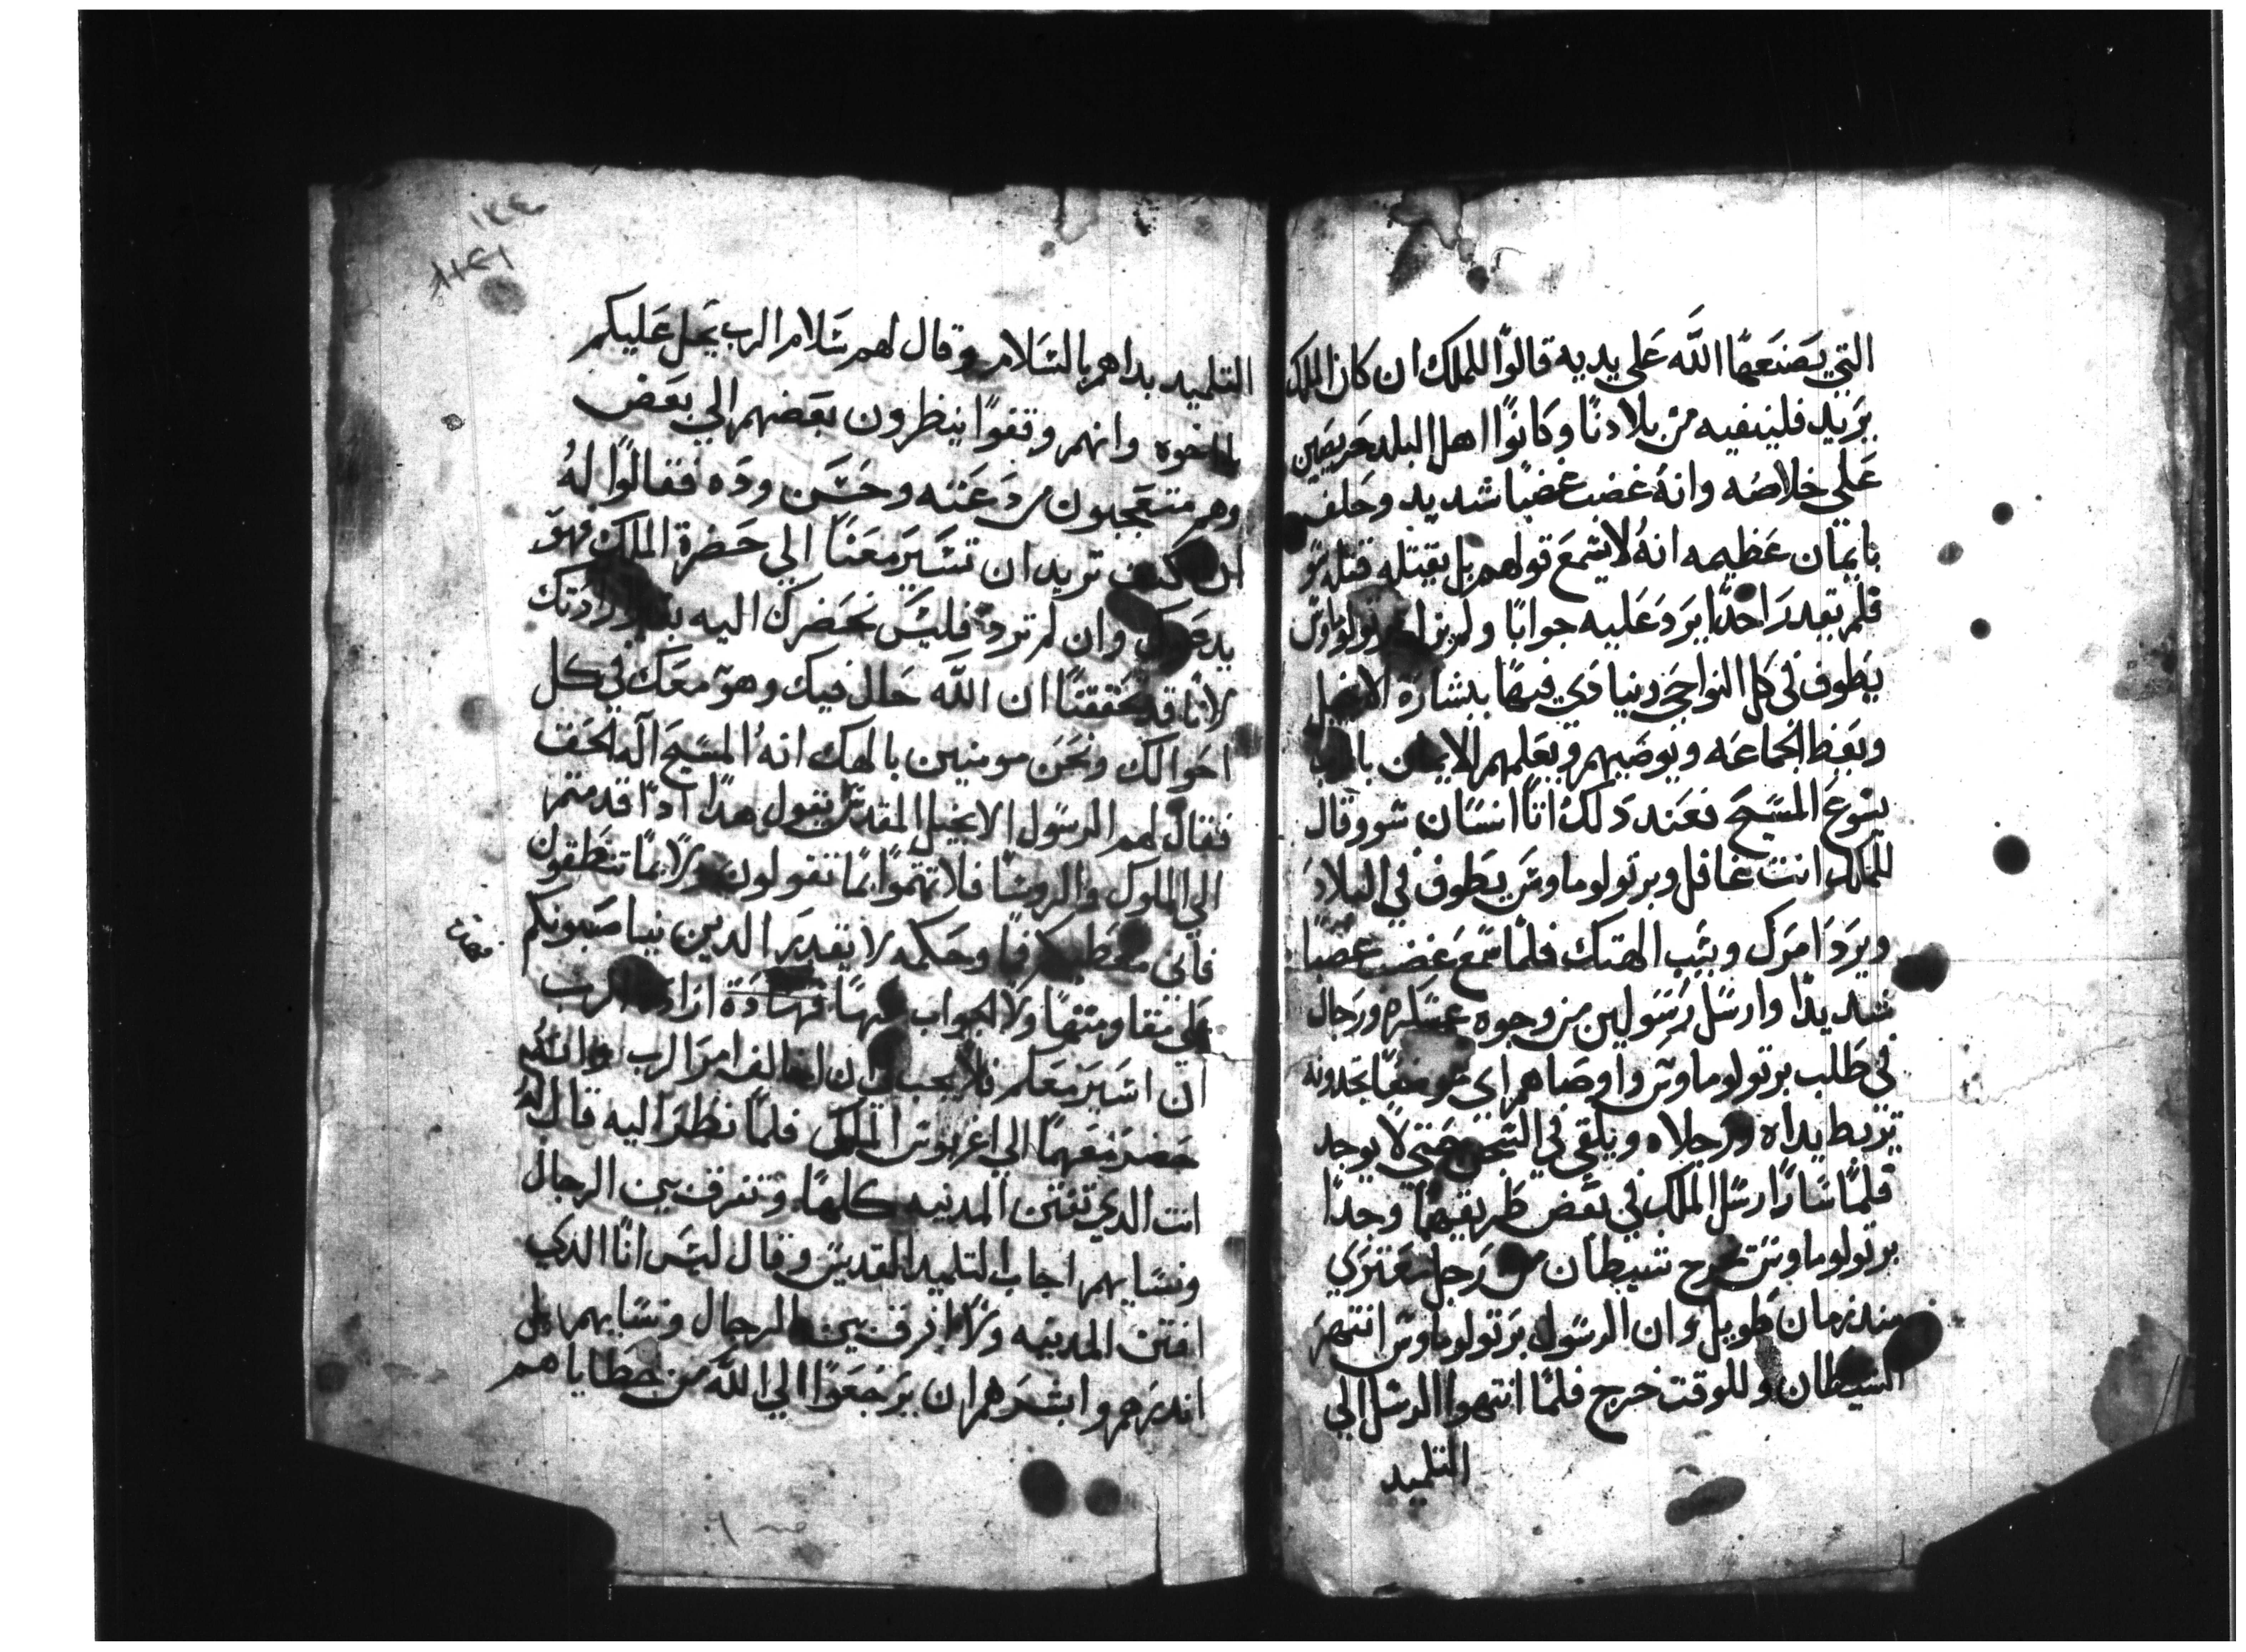 التي يصنعها الله على يديه قالوا للملك ان كان الملك
يريد فلينفيه من بلادنا وكانوا اهل البلد حريصين
على خلاصه وانه غضب غضبًا شديد وحلف
بايمان عظيمه انه لا يسمع قولهم بل يقتله
فلم يقدر احدًا يرد عليه جوابًا ولم يزل
يطوف في كل النواحي وينادي فيها ببشارة الانجيل
ويعظ الجماعه ويوصيهم ويعلمهم الايمان بالرب
يسوع المسيح فعند دلك اتا انسان سو وقال
للملك انت غافل وبرتولوماوس يطوف في البلاد
ويرد امرك ويسب الهتك فلما سمع غضب غضبًا
شديدًا وارسل رسولين من وجوه عسكره ورجال
في طلب برتولوماوس واوصاهم اي موضعًا يجدونه
تربط يداه ورجلاه ويلقى في السجن حتى لا يوجد
فلما سارا رسل الملك في بعض طريقهما وجدا
برتولوماوس يخرج شيطان من رجل يعتري
مند زمان طويل وان الرسول برتولوماوس انتهر
الشيطان وللوقت خرج فلما انتهوا الرسل الي
التلميد
التلميد بداهم بالسلام وقال لهم سلام الرب يحل عليكم
يا اخوه وانهم وقفوا ينظرون بعضهم الي بعض
وهم متعجبون من دعته وحسن وده فقالوا له
ان كنت تريد ان تسير معنا الي حضرة الملك فهو
يدعوك وان لم ترد فليس نحضرك اليه بغير ارادتك
لانا قد تحققنا ان الله حال فيك وهو معك في كل
احوالك ونحن مومنين بالهك انه المسيح آله الحق
فقال لهم الرسول الانجيل المقدس يقول هدا ادا قدمتم
الي الملوك والروسا فلا تهتموا بما تقولون ولا بما تنطقون
فاني معطيكم فمًا وحكمه لا يقدر الدين يناصبونكم
على مقاومتها ولا الجواب عنها فهادة ارادة الرب
ان اسير معكم فلا يجب ان اخالف امر الرب
حضر معهما الي اغربوس الملك فلما نظر اليه قال له
انت الدي تفتن المدنيه كلها وتفرق بين الرجال
ونسايهم اجاب التلميد القديس وقال ليس انا الدي
افتن المدينه ولا افرق بين الرجال ونسايهم بل
اندرهم وابشرهم ان يرجعوا الي الله من خطاياهم